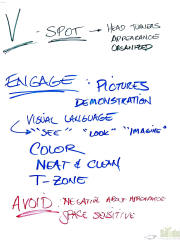 V - SPOT → HEAD TURNERS
APPEARANCE
ORGANIZED
ENGAGE : PICTURES
DEMONSTRATION
VISUAL LANGUAGE
"SEE" "LOOK" "IMAGINE"
COLOR
NEAT & CLEAN
T-ZONE
AVOID : NEGATIVE ABOUT APPEARANCE
SPACE SENSITIVE